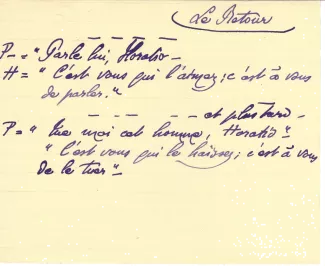 Le Retour
— — — —
P— = "Parle lui, Horatio—
H = "C'est vous qui l'aimez; c'est à vous
de parler."
— — — — — et plus tard—
P = "Tue moi cet homme, Horatio"
"C'est vous qui le haïssez; c'est à vous
de le tuer"—